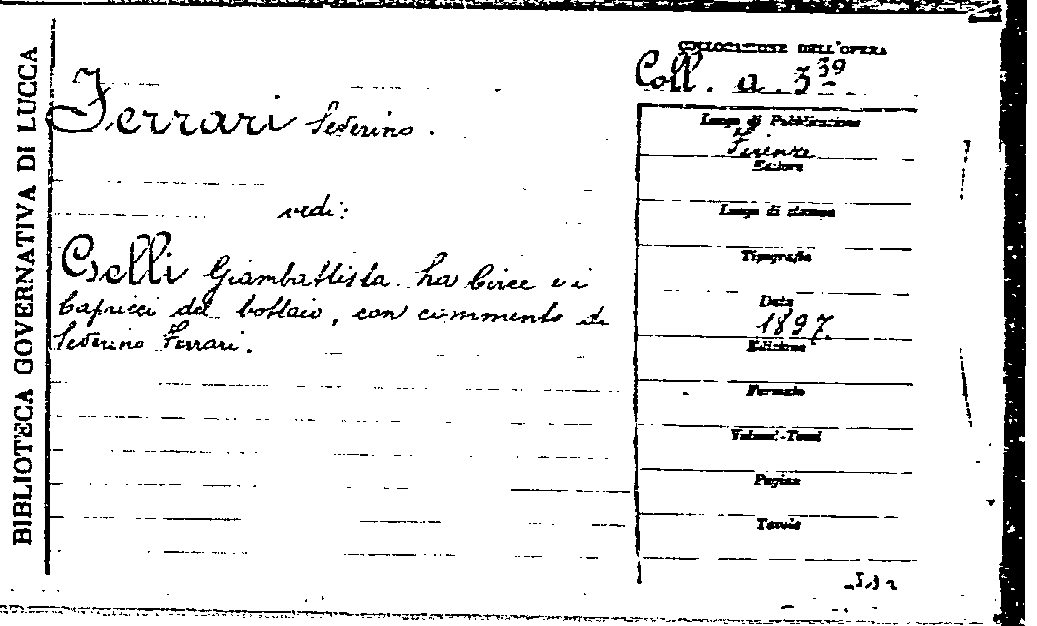 BIBLIOTECA GOVERNATIVA DI LUCCA
COLLOCAZIONE DELL'OPERA
Coll. a. 3 39
Ferrari Severino.
vedi:
Gelli Giambattista. La Circe e i
Capricci del bottaio, con commento di
Severino Ferrari.
Luogo di Pubblicazione
Firenze
Editore
Luogo di stampa
Tipografia
Data
1897
Edizione
Formato
Volumi-Tomi
Pagine
Tavole